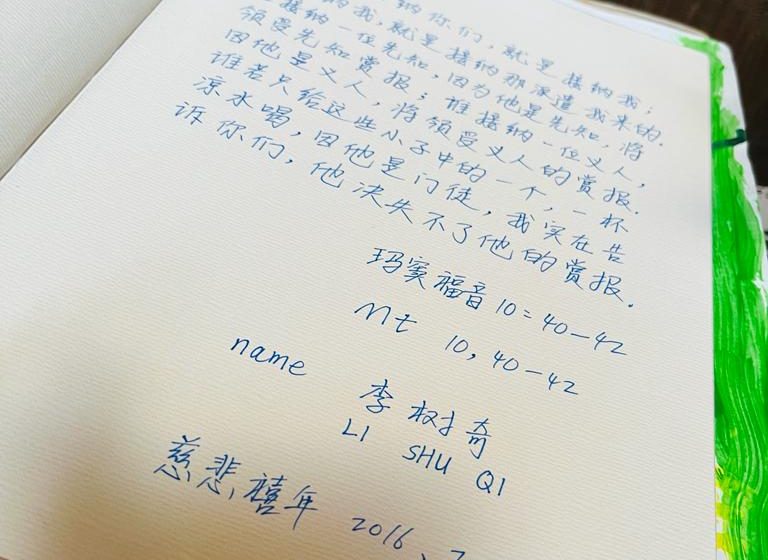 纳你们，就是接纳我；
纳我，就是接纳那派遣我来的.
接纳一位先知，因为他是先知，将
领受先知赏报；谁接纳一位义人，
因他是义人，将领受义人的赏报.
谁若只给这些小子中的一个，一杯
凉水喝，因他是门徒，我实在告
诉你们，他决失不了他的赏报.
玛窦福音 10:40-42
Mt 10,40-42
name 李树奇
LI SHU QI
慈悲禧年 2016、